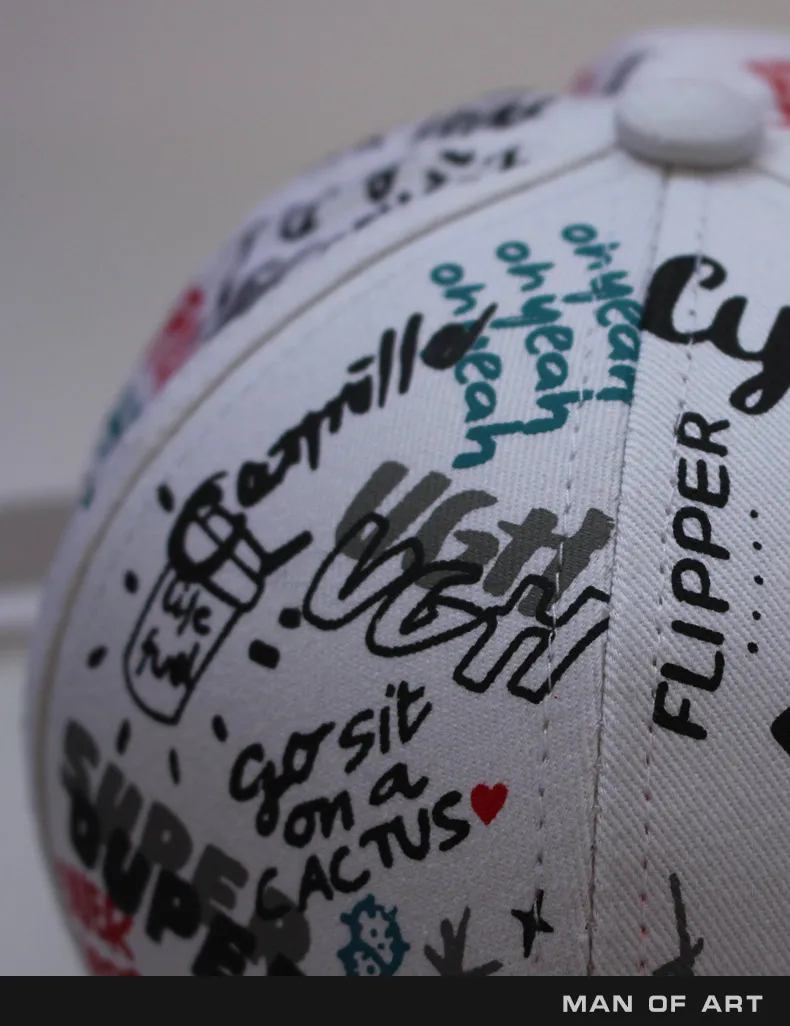 oh yeah
oh yeah
oh yeah
Cy
UGH
UGH
FLIPPER
life
fuel
go sit
on a
CACTUS
SUPER
DUPER
MAN OF ART